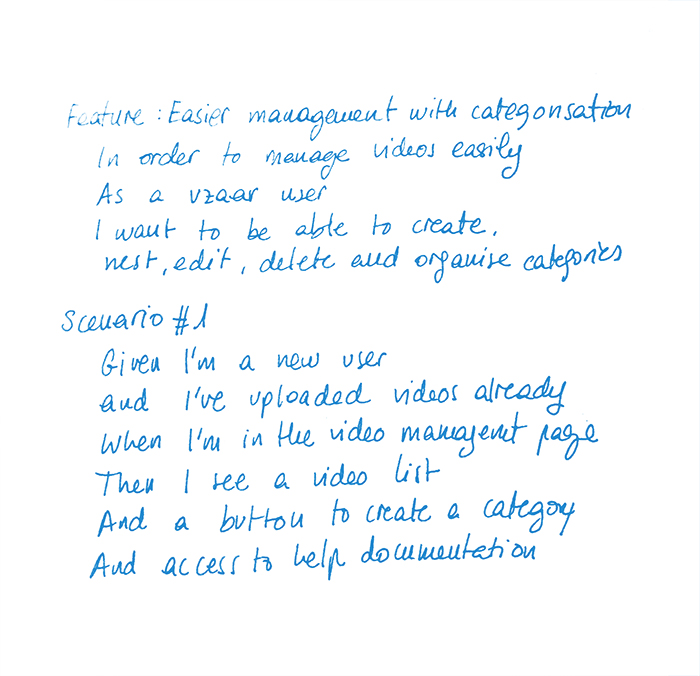 Feature: Easier management with categorisation
In order to manage videos easily
As a vzaar user
I want to be able to create,
nest, edit, delete and organise categories
Scenario #1
Given I'm a new user
and I've uploaded videos already
When I'm in the video managemt page
Then I see a video list
And a button to create a category
And access to help documentation